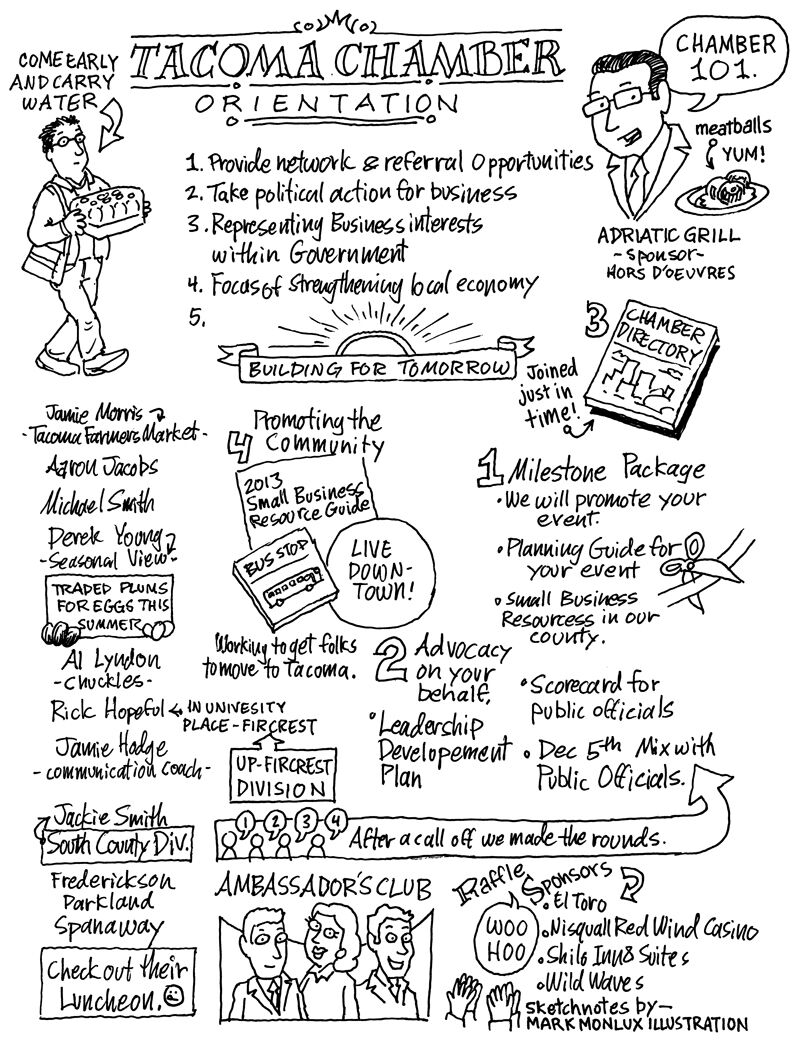 COME EARLY
AND CARRY
WATER
TACOMA CHAMBER
ORIENTATION
CHAMBER
101.
meatballs
YUM!
ADRIATIC GRILL
- sponsor -
HORS D'OEUVRES
1. Provide network & referral Opportunities
2. Take political action for business
3. Representing Business interests
within Government
4. Focus of strengthening local economy
5.
BUILDING FOR TOMORROW
3
CHAMBER
DIRECTORY
Joined
just in
time!
Jamie Morris
- Tacoma Farmers Market -
Aaron Jacobs
Michael Smith
Derek Young
- Seasonal View -
TRADED PLUMS
FOR EGGS THIS
SUMMER
Al Lyndon
- Chuckles -
Rick Hopeful
IN UNIVESITY
PLACE - FIRCREST
UP-FIRCREST
DIVISION
Jamie Hodge
- communication coach -
Jackie Smith
South County Div.
Frederickson
Parkland
Spanaway
Check out their
Luncheon.
4 Promoting the
Community
2013
Small Business
Resource Guide
BUS STOP
LIVE
DOWN-
TOWN!
Working to get folks
to move to Tacoma.
1 Milestone Package
• We will promote your
event.
• Planning Guide for
your event
• Small Business
Resourcess in our
county.
2 Advocacy
on your
behalf.
• Leadership
Developement
Plan
• Scorecard for
public officials
• Dec 5th Mix with
Public Officials.
1 2 3 4
After a call off we made the rounds.
AMBASSADOR'S CLUB
Raffle Sponsors
WOO
HOO
• El Toro
• Nisquall Red Wind Casino
• Shilo Inn & Suites
• Wild Waves
sketchnotes by -
MARK MONLUX ILLUSTRATION